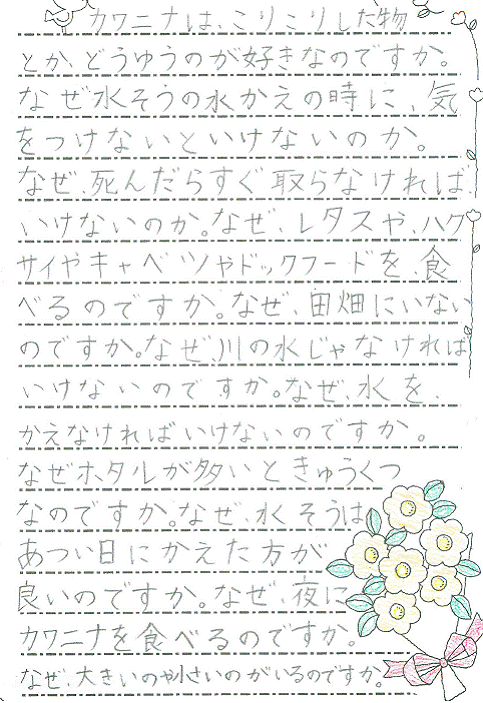 カワニナは、こりこりした物
とか、どうゆうのが好きなのですか。
なぜ水そうの水かえの時に、気
をつけないといけないのか。
なぜ、死んだらすぐ取らなければ、
いけないのか。なぜ、レタスや、ハク
サイやキャベツやドックフードを、食
べるのですか。なぜ、田畑にいない
のですか。なぜ、川の水じゃなければ
いけないのですか。なぜ、水を、
かえなければいけないのですか。
なぜホタルが多いときゅうくつ
なのですか。なぜ、水そうは
あつい日にかえた方が
良いのですか。なぜ、夜に
カワニナを食べるのですか。
なぜ、大きいのや小さいのがいるのですか。